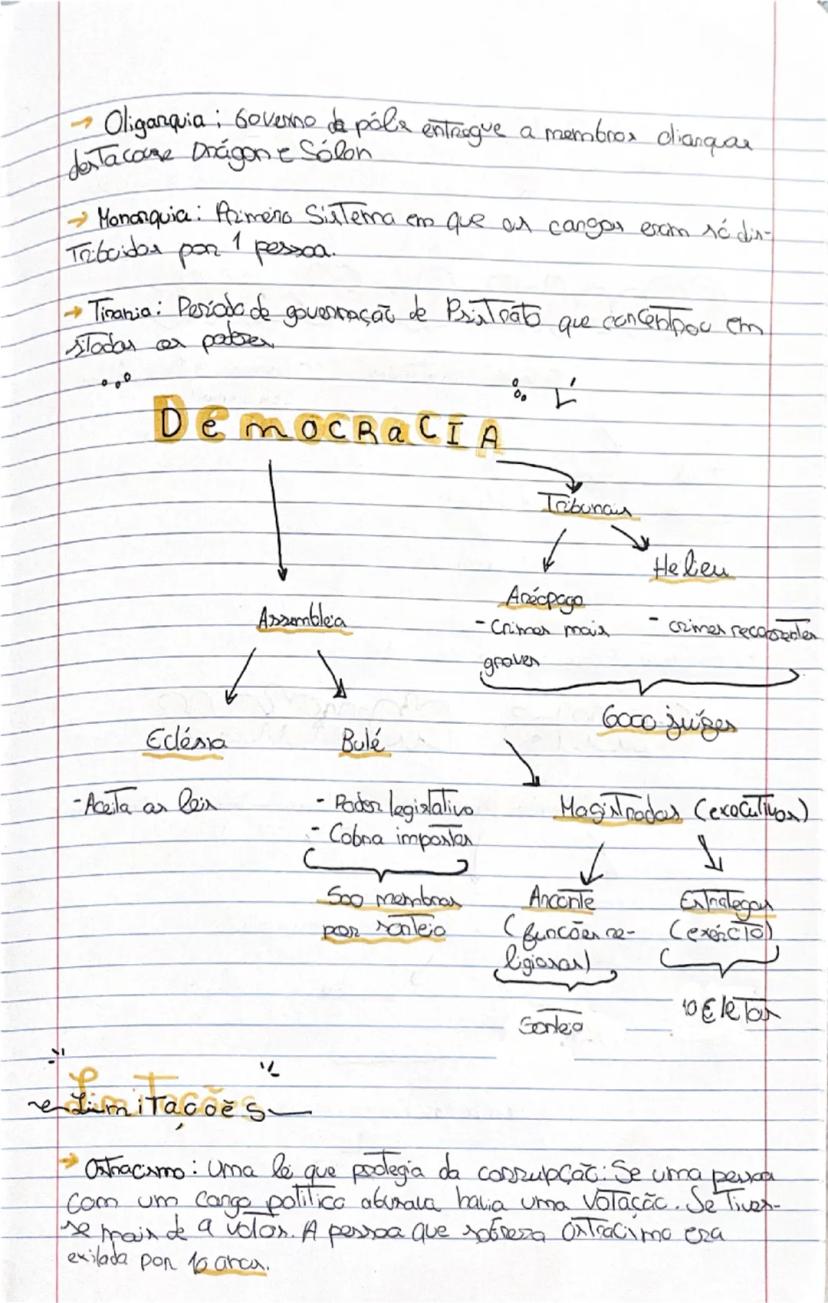 → Oligarquia: Governo da pólis entregue a membros
destacou-se Drágon e Sólon
→ Monarquia: Primeiro Sistema em que os cargos eram só dis-
tribuidos por 1 pessoa.
→ Tirania: Periodo de governação de que concentrou em
os poderes
DemocRaCIA
Tribunais
Helieu
Areópago
- Crimes mais
graves
- crimes
6000 juízes
Assembleia
Eclésia
Bulé
- Aceita as leis
- Poder legislativo
- Cobra impostos
500 membros
por sorteio
Magistrados (executivos)
Arconte
(funcões re-
ligiosas)
Sorteio
Estrategas
(exército)
10 Eleitos
Limitações
→ Ostracismo: Uma lei que protegia da corrupção: Se uma pessoa
com um cargo politico abusava havia uma votação. Se tives-
se mais de votos. A pessoa que era
exilada por 10 anos.